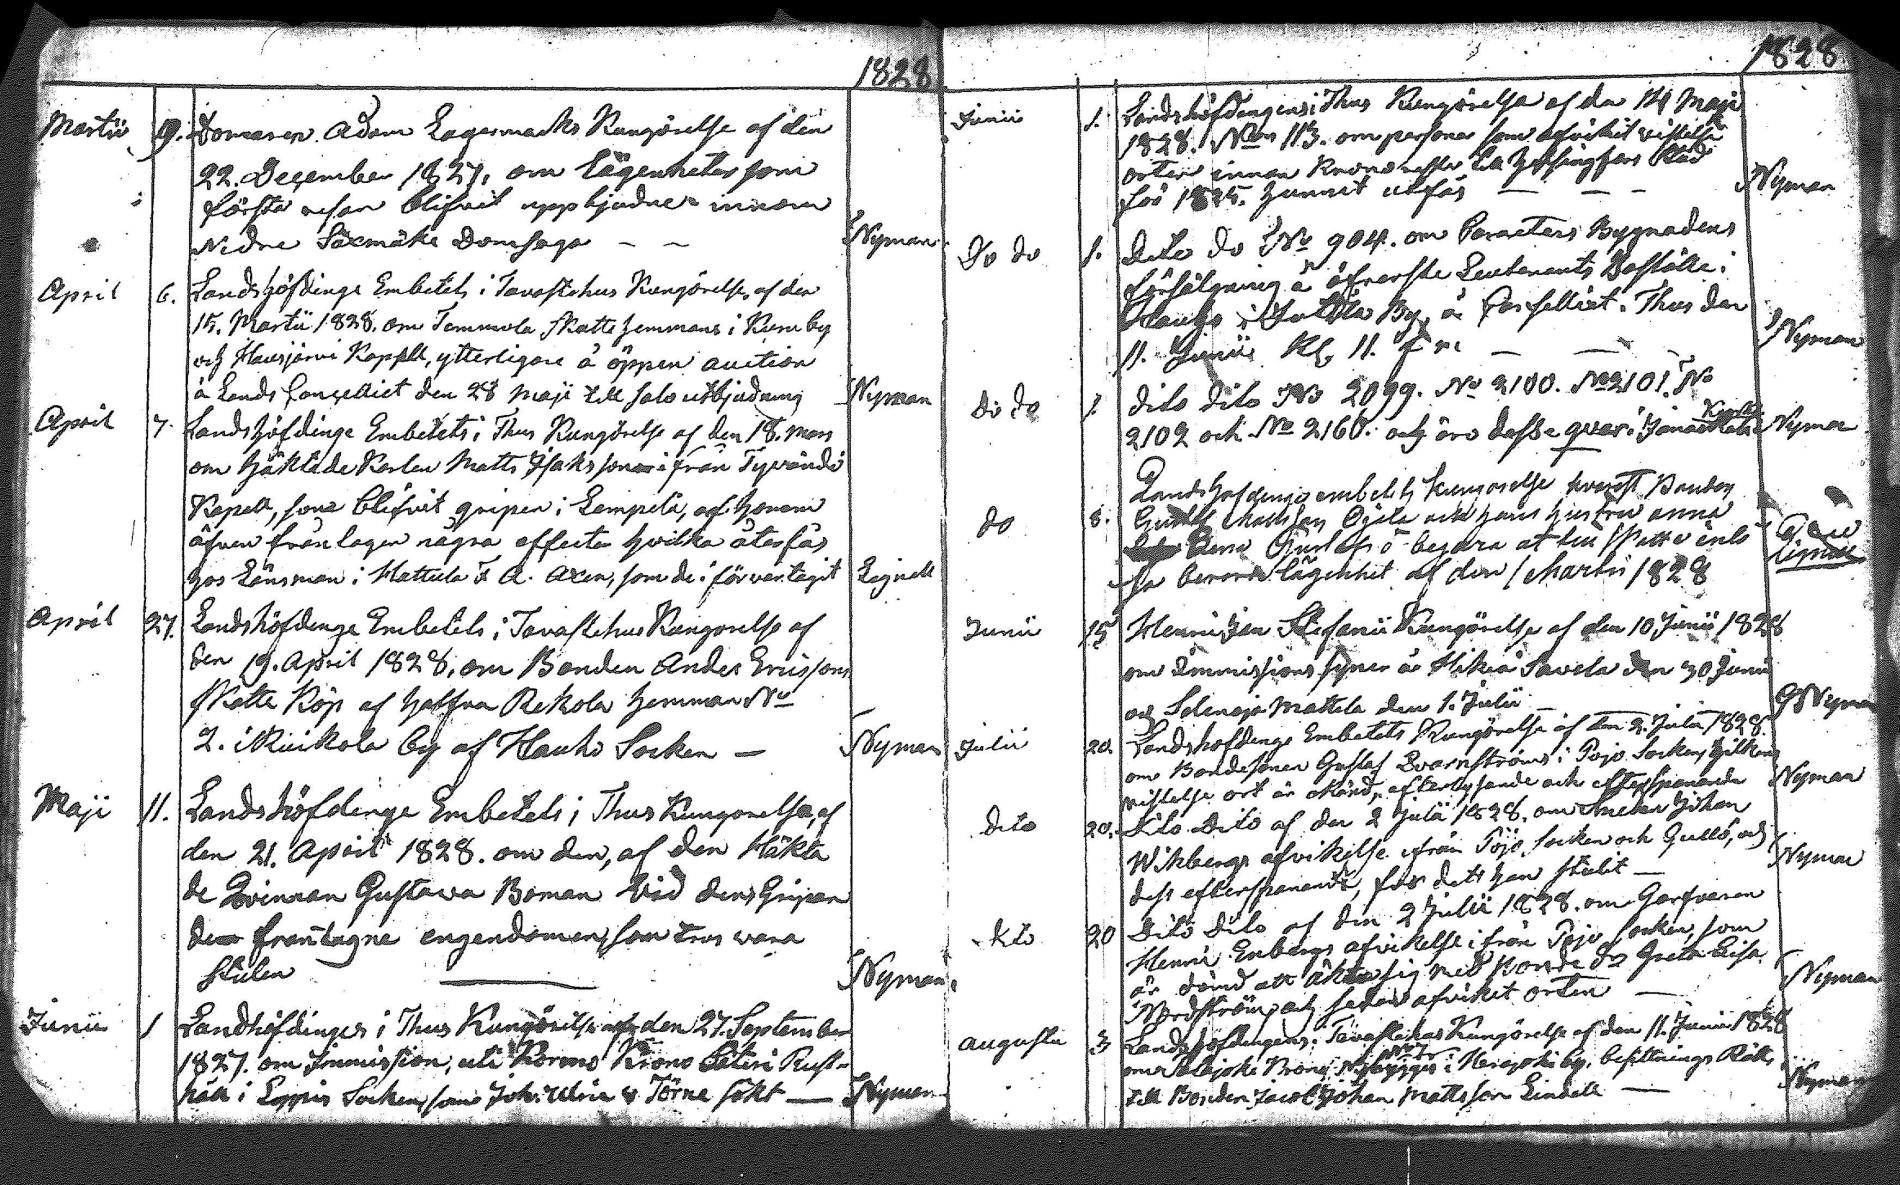 1828
Martii 9. Domaren Adam Lagermarks Kungörelse af den
22. December 1827, om lägenheter som
första resan blifvit uppbjudne innom
Nedre Säxmäki Domsaga — — Nyman
April 6. Landshöfdinge Embetets i Tavastehus Kungörelse, af den
15. Martii 1828. om Tommola skatte hemmans i Kum by
och Hausjärvi Kapell, ytterligare å öppen auction
å Lands Cancelliet den 28 Maji till salu utbjudning Nyman
April 7. Landshöfdinge Embetets i Thus Kungörelse af den 18. Mars
om häktade Karlen Matts Isaksson ifrån Tyrvändö
Kapell, som blifvit gripen i Lempelä, af honom
äfven fråntagen några effecter hvilka återfås
hos Länsman i Hattula F. A. Axen, som de i förvar tagit Lignell
April 27. Landshöfdinge Embetets i Tavastehus Kungorelse af
den 19. April 1828, om Bonden Anders Ericssons
Skatte Köp af haffna Rekola hemman No
2. i Kuikola by af Hauho Socken — Nyman
Maji 11. Landshöfdinge Embetets i Thus Kungorelse, af
den 21. April 1828. om den, af den Häkta
de Qvinnan Gustava Boman vid dess Gripan
de frantagne engendomen, som tros vara
stulen — Nyman
Junii 1 Landhöfdinges i Thus Kungörelse af den 27. September
1827. om Immission, uti Krono Säteri Rust-
håll i Loppis Socken, som Joh. Ulric v Törne sökt — Nyman
1828
Junii 1. Landshöfdingens i Thus Kungörelse af den 14 Maji
1828. No 113. om persone som afvikit vistelse
orten innan Kronoresten
för 1825. hunnit utfås — — — Nyman
Do do 1. Dito do No 904. om Caracters Bygnadens
försäljning å öfverste Leutenants Boställe i
Hauho i By, å Cancelliet i Thus den
11. Junii Kl. 11. f m — — — Nyman
Do do 1. Dito dito No 2099. No 2100. No 2101. No
2102 och No 2160. och äro desse qvar i Janakkala Kyrka Nyman
do 8. Landshöfdinge embetets Kungörelse hvarest Bonden
Gustaf Mattsson Ojala och hans hustru Anna
Lena Gustafs d begära at till skatte inlö
sa berörde lägenhet af den 1 Martii 1828 Lignell
Junii 15 Henric Jan Stefanii Kungörelse af den 10 Junii 1828
om immissions syner å Hikiä Savela den 30 Junii
och Selenoja Mattela den 1. Julii — G Nyman
Julii 20. Landshöfdinge Embetets Kungörelse af den 2. Julii 1828.
om Bondesonen Gustaf Qvarnströms i Pojo Socken, hvilkens
vistelse ort är okänd, efterlysande och efterspanande Nyman
Dito 20. Dito Dito af den 2 Julii 1828. om Smeden Johan
Wikbergs afvikelse ifrån Pojo Socken och Gullö, och
dess efterspanande, för dett han stulit — Nyman
dto 20 Dito Dito af den 2 Julii 1828. om Garfvaren
Henric Enbergs afvikelse ifrån Pojo Socken, som
är dömd att äkta sig med Greta Lisa
Nordström och sedan afviket orten — Nyman
augusti 3 Landshöfdingens i Tavastehus Kungörelse af den 11. Junii 1828
om Krono Nybygges No 7 i by, besittnings Rätt,
till Bonden Jacob Johan Mattsson Lindell — Nyman